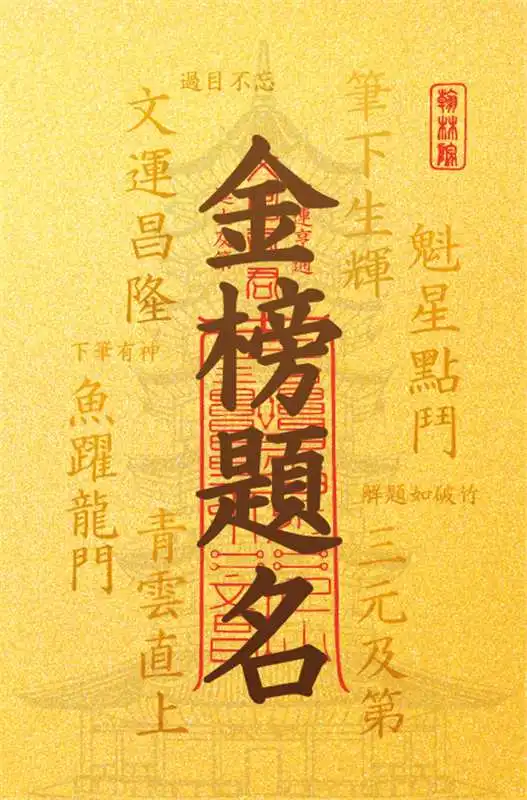 翰林院
魁星點鬥
筆下生輝
解題如破竹
三元及第
金榜題名
過目不忘
文運昌隆
下筆有神
魚躍龍門
青雲直上